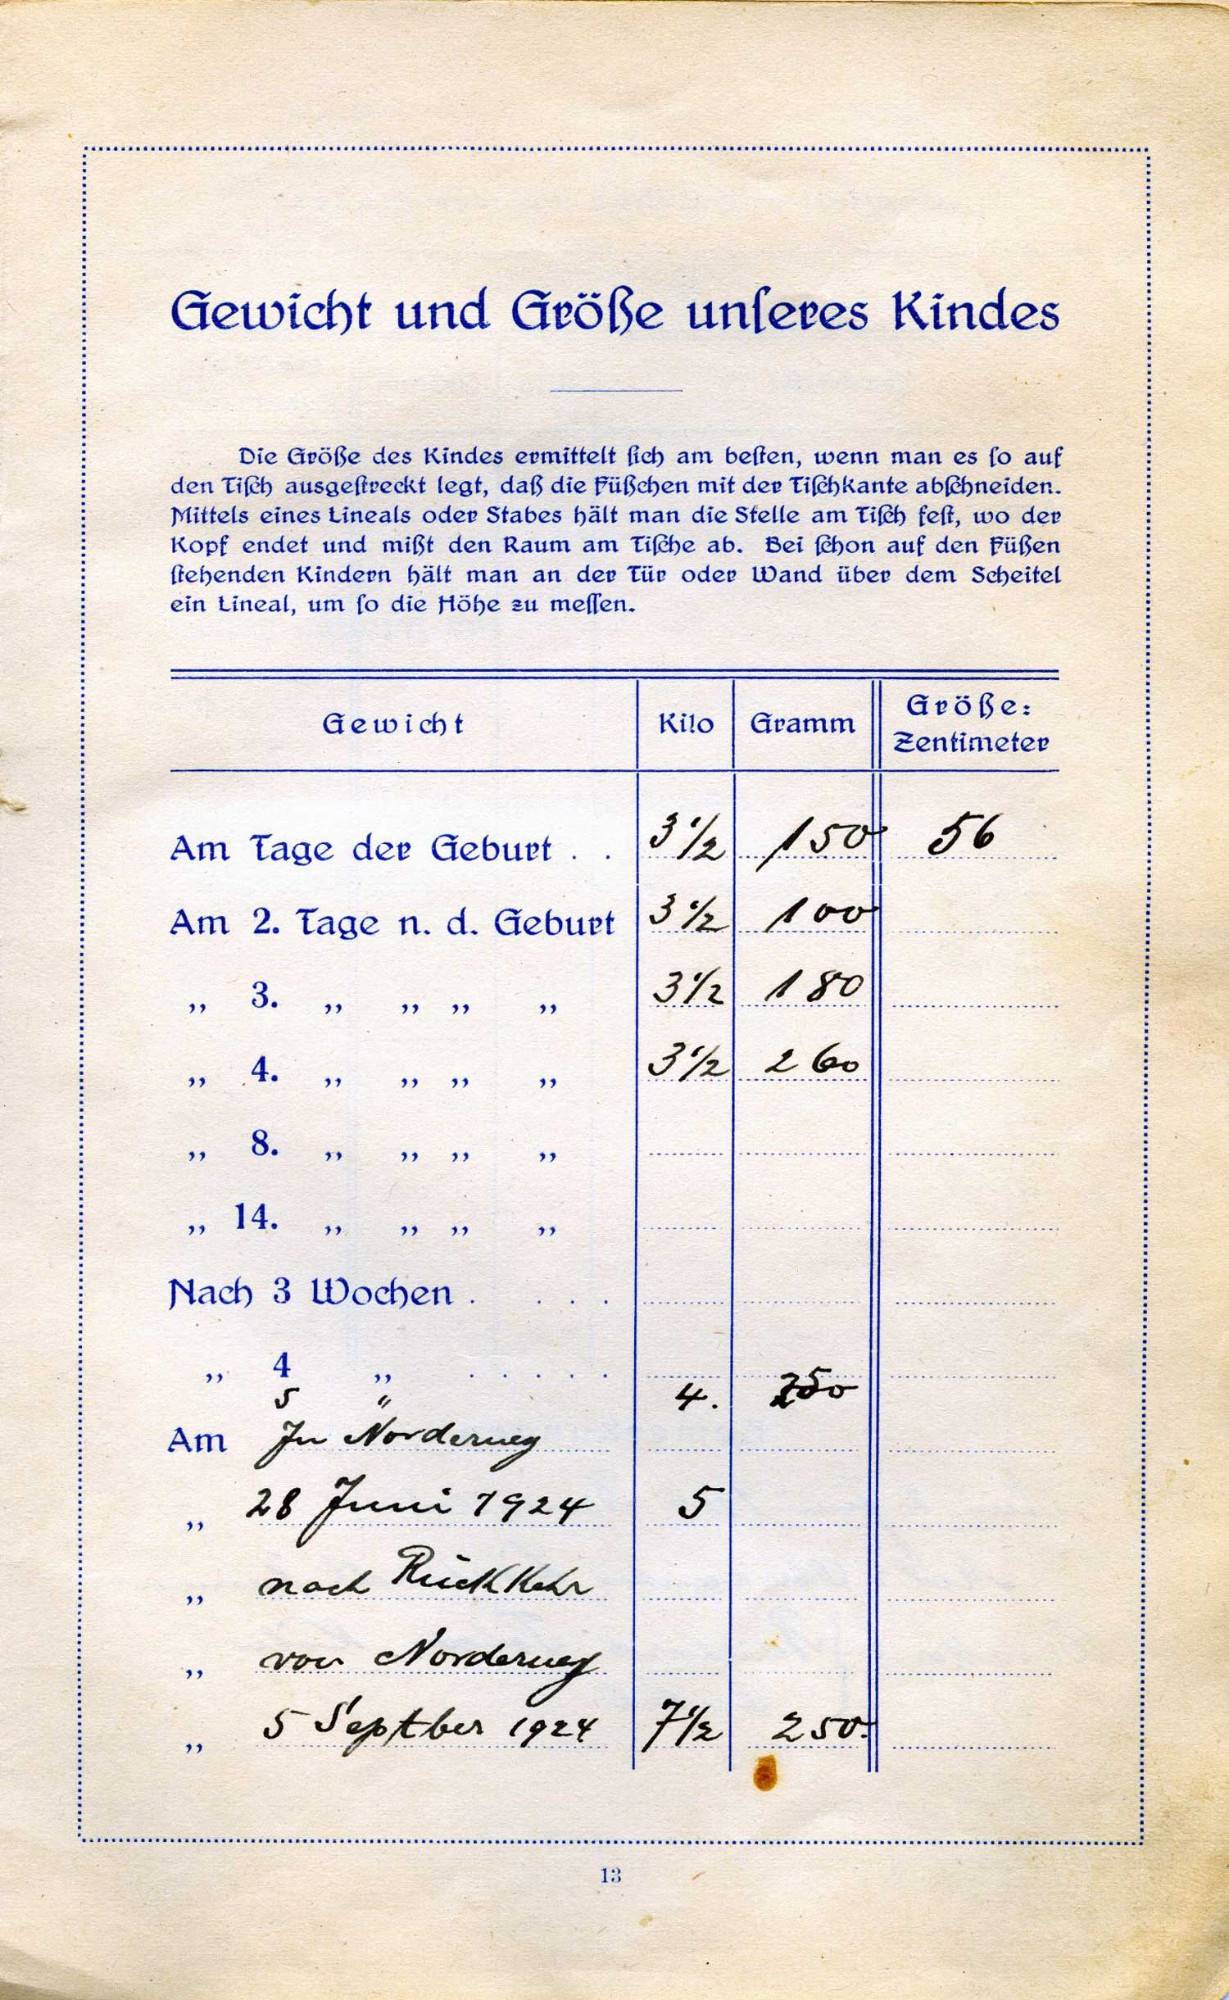 Gewicht und Größe unseres Kindes
Die Größe des Kindes ermittelt sich am besten, wenn man es so auf
den Tisch ausgestreckt legt, daß die Füßchen mit der Tischkante abschneiden.
Mittels eines Lineals oder Stabes hält man die Stelle am Tisch fest, wo der
Kopf endet und mißt den Raum am Tische ab. Bei schon auf den Füßen
stehenden Kindern hält man an der Tür oder Wand über dem Scheitel
ein Lineal, um so die Höhe zu messen.
Gewicht Kilo Gramm Größe: Zentimeter
Am Tage der Geburt . . 3 1/2 150 56
Am 2. Tage n. d. Geburt 3 1/2 100
„ 3. „ „ „ „ 3 1/2 180
„ 4. „ „ „ „ 3 1/2 260
„ 8. „ „ „ „
„ 14. „ „ „ „
Nach 3 Wochen . . . .
„ 4 „ . . . . .
5 " 4. 250
Am In Norderney
„ 28 Juni 1924 5
„ nach Rückkehr
„ von Norderney
„ 5 Septber 1924 7 1/2 250.
13